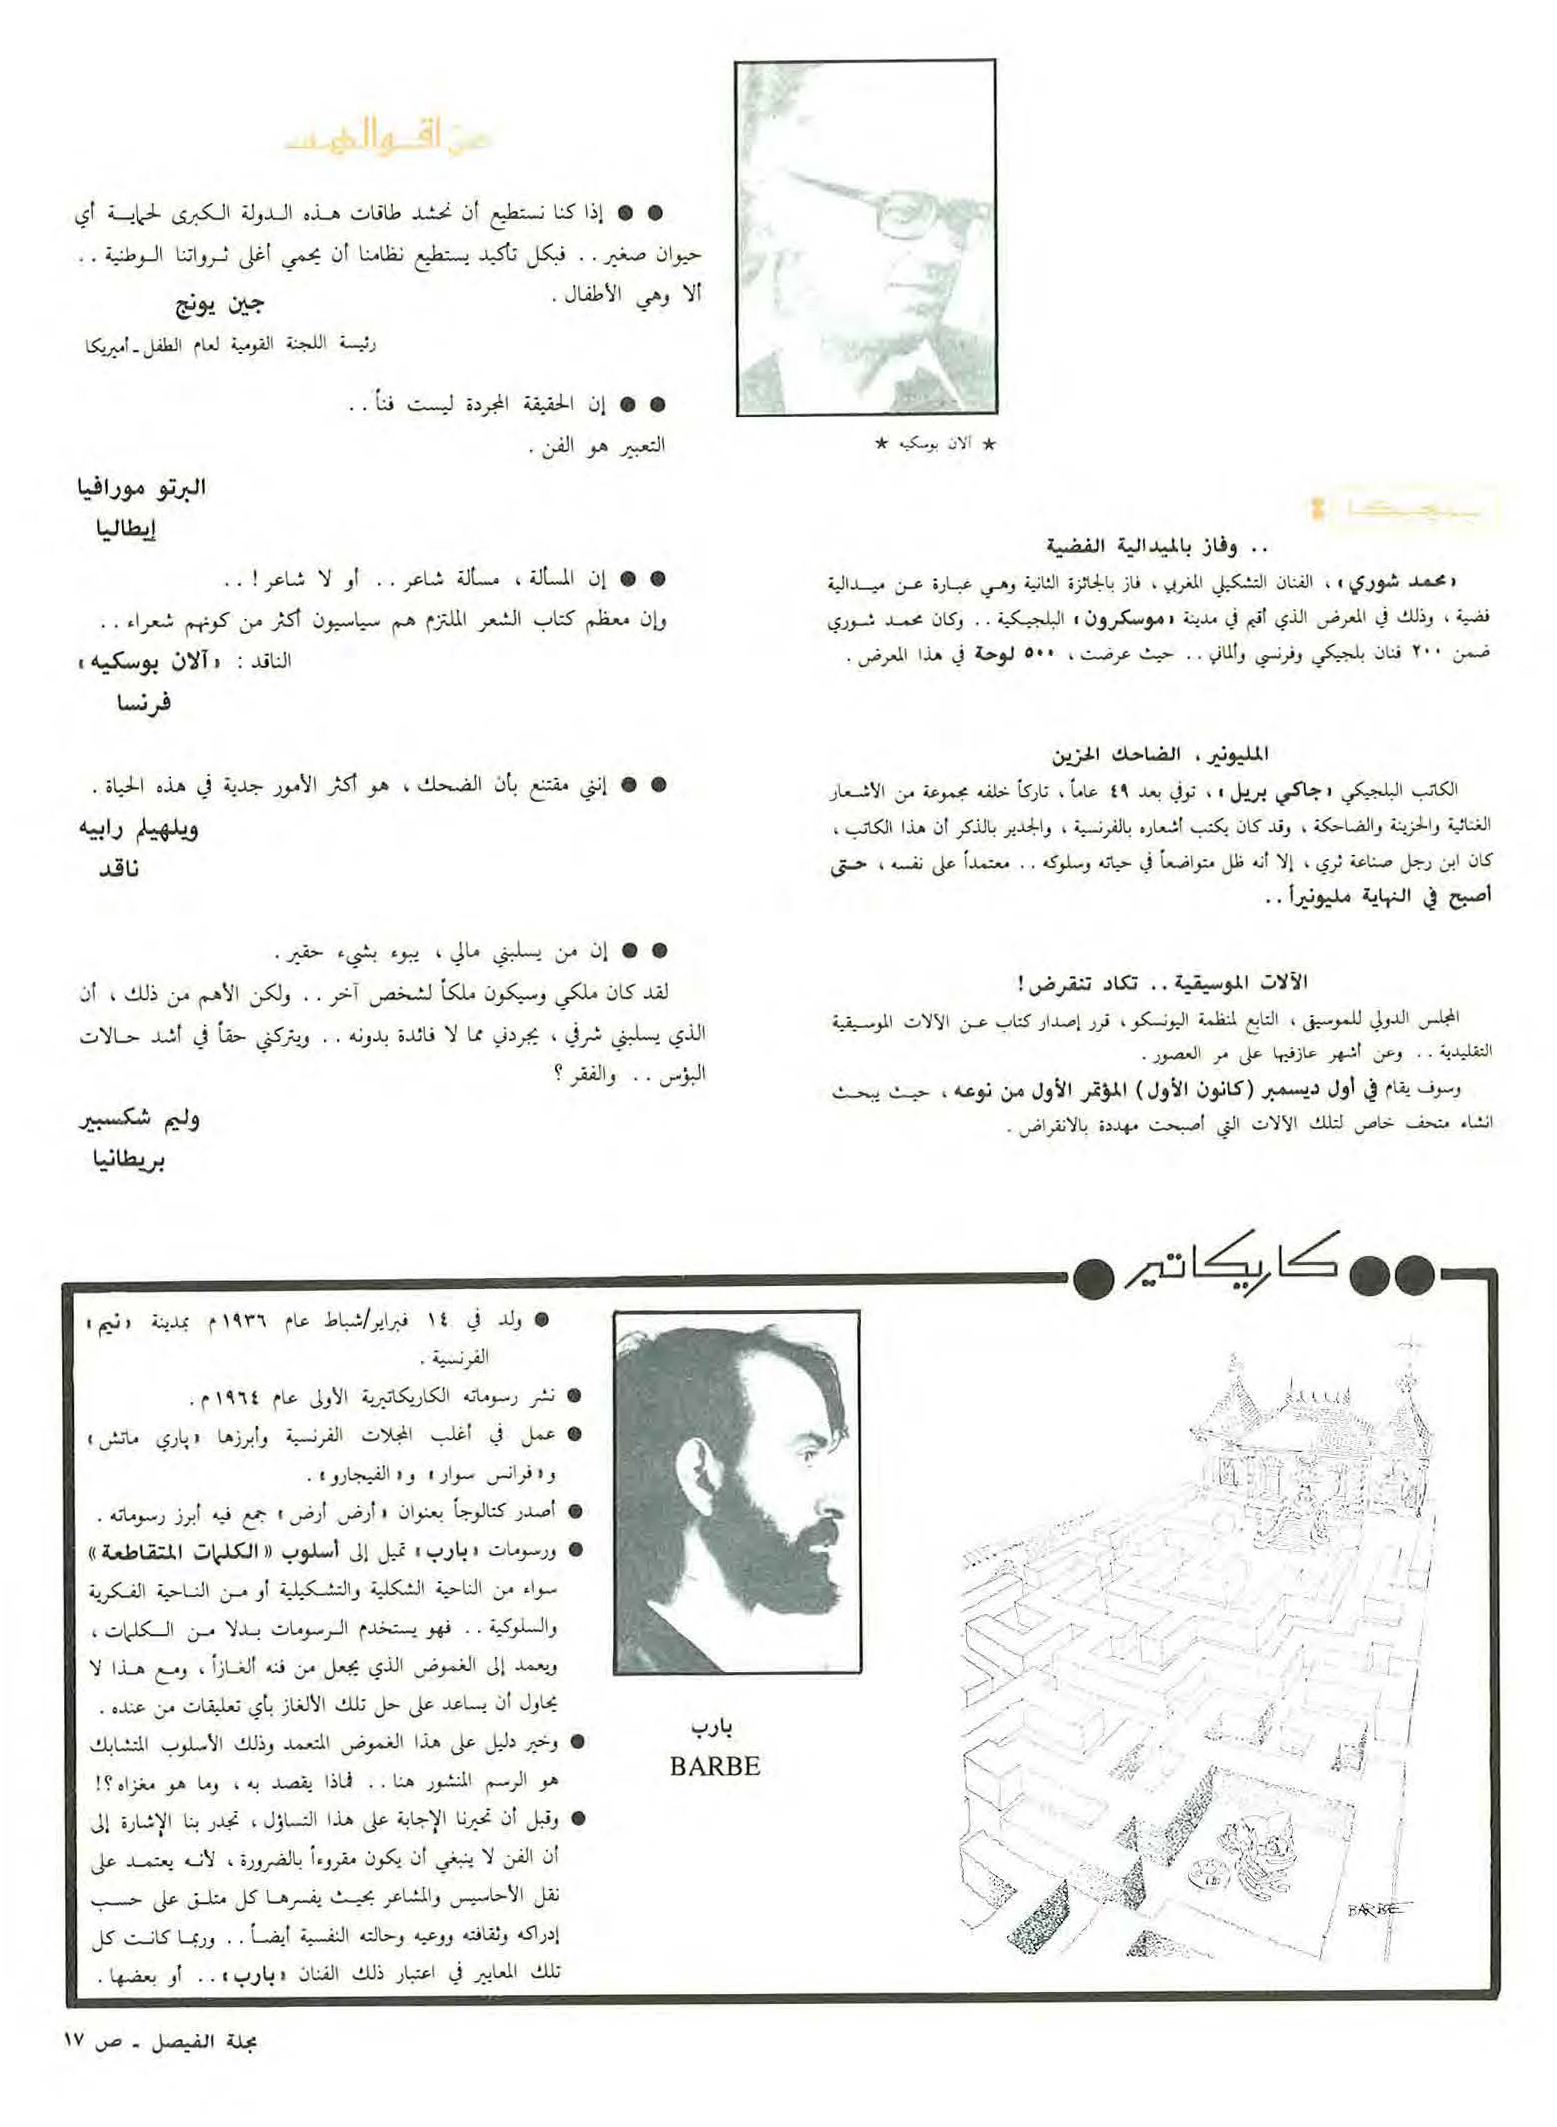 ★ آلان بوسكيه ★
بلجيكا
.. وفاز بالميدالية الفضية
«محمد شوري» ، الفنان التشكيلي المغربي ، فاز بالجائزة الثانية وهي عبارة عن ميدالية
فضية ، وذلك في المعرض الذي أقيم في مدينة «موسكرون» البلجيكية .. وكان محمد شوري
ضمن ٢٠٠ فنان بلجيكي وفرنسي وألماني .. حيث عرضت ، ٥٠٠ لوحة في هذا المعرض .
المليونير ، الضاحك الحزين
الكاتب البلجيكي «جاكي بريل» ، توفي بعد ٤٩ عاماً ، تاركاً خلفه مجموعة من الأشعار
الغنائية والحزينة والضاحكة ، وقد كان يكتب أشعاره بالفرنسية ، والجدير بالذكر أن هذا الكاتب ،
كان ابن رجل صناعة ثري ، إلا أنه ظل متواضعاً في حياته وسلوكه .. معتمداً على نفسه ، حتى
أصبح في النهاية مليونيراً ..
الآلات الموسيقية .. تكاد تنقرض !
المجلس الدولي للموسيقى ، التابع لمنظمة اليونسكو ، قرر إصدار كتاب عن الآلات الموسيقية
التقليدية .. وعن أشهر عازفيها على مر العصور .
وسوف يقام في أول ديسمبر (كانون الأول) المؤتمر الأول من نوعه ، حيث يبحث
انشاء متحف خاص لتلك الآلات التي أصبحت مهددة بالانقراض .
من اقوالهم
●● إذا كنا نستطيع أن نحشد طاقات هذه الدولة الكبرى لحماية أي
حيوان صغير .. فبكل تأكيد يستطيع نظامنا أن يحمي أغلى ثرواتنا الوطنية ..
ألا وهي الأطفال .
جين يونج
رئيسة اللجنة القومية لعام الطفل - أميريكا
●● إن الحقيقة المجردة ليست فناً ..
التعبير هو الفن .
البرتو مورافيا
إيطاليا
●● إن المسألة ، مسألة شاعر .. أو لا شاعر ! ..
وإن معظم كتاب الشعر الملتزم هم سياسيون أكثر من كونهم شعراء ..
الناقد : «آلان بوسكيه»
فرنسا
●● إنني مقتنع بأن الضحك ، هو أكثر الأمور جدية في هذه الحياة .
ويلهيلم رابيه
ناقد
●● إن من يسلبني مالي ، يبوء بشيء حقير .
لقد كان ملكي وسيكون ملكاً لشخص آخر .. ولكن الأهم من ذلك ، أن
الذي يسلبني شرفي ، يجردني مما لا فائدة بدونه .. ويتركني حقاً في أشد حالات
البؤس .. والفقر ؟
وليم شكسبير
بريطانيا
●● كاريكاتير ●
BARBE
بارب
BARBE
● ولد في ١٤ فبراير/شباط عام ١٩٣٦ م بمدينة «نيم»
الفرنسية .
● نشر رسوماته الكاريكاتيرية الأولى عام ١٩٦٤ م .
● عمل في أغلب المجلات الفرنسية وأبرزها «پاري ماتش»
و«فرانس سوار» و«الفيجارو» .
● أصدر كتالوجاً بعنوان «أرض أرض» جمع فيه أبرز رسوماته .
● ورسومات «بارب» تميل إلى أسلوب «الكلمات المتقاطعة»
سواء من الناحية الشكلية والتشكيلية أو من الناحية الفكرية
والسلوكية .. فهو يستخدم الرسومات بدلا من الكلمات ،
ويعمد إلى الغموض الذي يجعل من فنه ألغازاً ، ومع هذا لا
يحاول أن يساعد على حل تلك الألغاز بأي تعليقات من عنده .
● وخير دليل على هذا الغموض المتعمد وذلك الأسلوب المتشابك
هو الرسم المنشور هنا .. فماذا يقصد به ، وما هو مغزاه ؟!
● وقبل أن تحيرنا الإجابة على هذا التساؤل ، تجدر بنا الإشارة إلى
أن الفن لا ينبغي أن يكون مقروءاً بالضرورة ، لأنه يعتمد على
نقل الأحاسيس والمشاعر بحيث يفسرها كل متلق على حسب
إدراكه وثقافته ووعيه وحالته النفسية أيضاً .. وربما كانت كل
تلك المعايير في اعتبار ذلك الفنان «بارب» .. أو بعضها .
مجلة الفيصل - ص ١٧